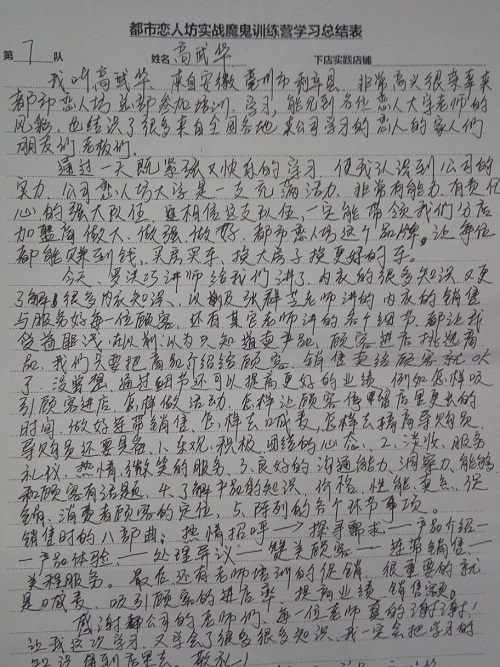 都市恋人坊实战魔鬼训练营学习总结表
第 7 队 姓名 高武华 下店实践店铺
我叫高武华 来自安徽亳州市利辛县 非常高兴很荣幸来
都市恋人坊总部参加培训、学习,能见到各位恋人大学老师的
风彩,也结识了很多来自全国各地 来公司学习的恋人的家人们
朋友们老板们。
通过一天既紧张又快乐的学习 使我认识到公司的
实力 公司恋人坊大学是一支充满活力、非常有能力 有责任
心的强大队伍 真相信这支队伍,一定能带领我们分店
加盟商做大、做强、做好,都市恋人坊这个品牌,让每位
都能赚到钱,买房买车、换大房子换更好的车。
今天,罗 讲师给我们讲了内衣的很多知识 又更
了解很多内衣知识、以前及张群 老师讲的内衣的销售
与服务好每一位顾客,还有其它老师讲的各个细节、都让我
受益匪浅,在以前认为只知道卖产品,顾客进店挑选商
品,我们只要把商品介绍给顾客,销售卖给顾客就OK
了,没曾想 通过细节还可以提高更好的业绩 例如怎样吸
引顾客进店 怎样做活动、怎样让顾客停留店里更长的
时间,做好连带销售,怎样去喊麦,怎样去提高导购员,
导购员还要具备、1、乐观、积极、团结的心态、2、 服务
礼仪、热情、微笑的服务、3、良好的沟通能力、洞察力、能够
和顾客有话题、4、了解产品的知识、价格、性能、卖点、促
销、消费者顾客的定位、5、陈列的各个环节事项。
销售时的八部曲:热情招呼→探寻需求—产品介绍—
—产品体验、—处理异议—赞美顾客—连带销售—
美程服务。最后还有老师培训的促销、很重要的就
是喊麦、吸引顾客的进店率,提高业绩 销售额。
感谢 公司的老师们、每一位老师真的谢谢!
让我这次学习 又学会了很多很多知识 我一定会把学习的
知识 用到店里去,敬礼!